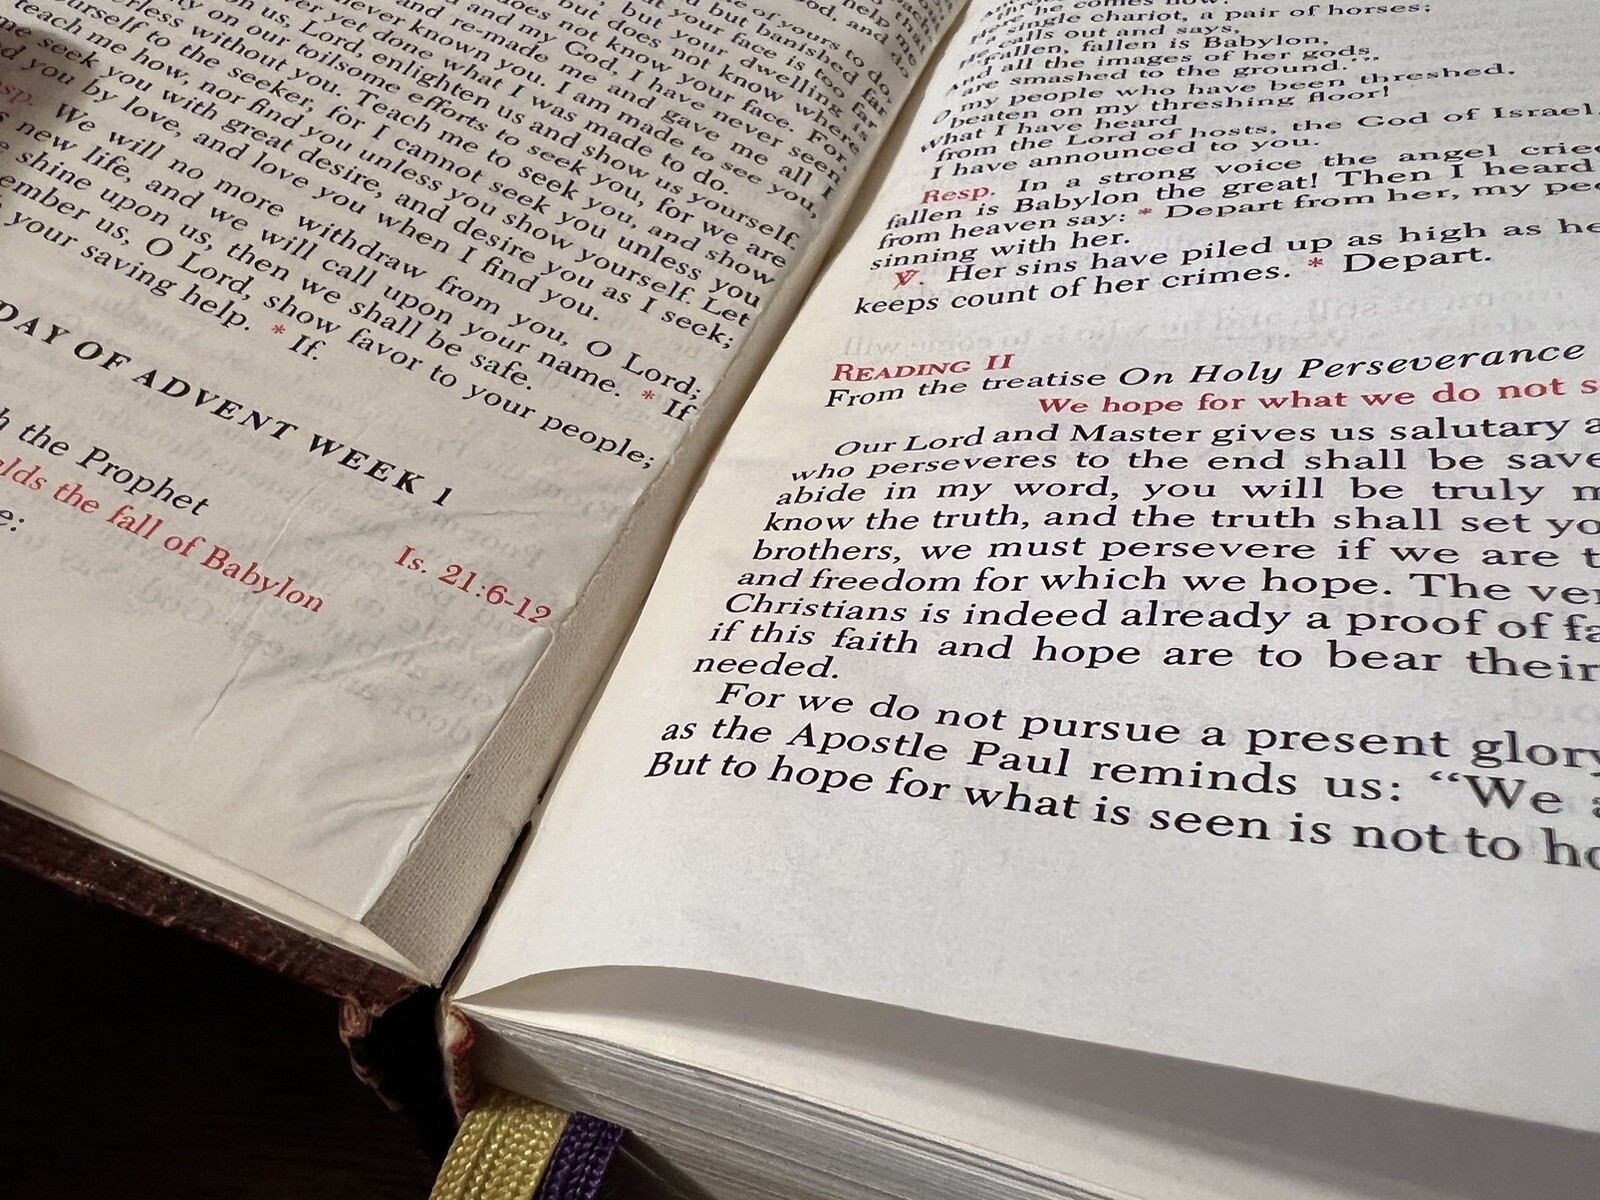 of yours to do,
God, and me
help me do
that
but banished far
your face is too far
your dwelling is
does not know where
does not know your face. For
and my God, I have never seen
and re-made me and gave me all I
never known you. I am made to see you,
yet done what I was made to do.
us, Lord, enlighten us and show us yourself.
on our toilsome efforts to seek you, for we are
without you. Teach me to seek you, and show
yourself to the seeker, for I cannot seek you unless you
teach me how, nor find you unless you show yourself. Let
me seek you with great desire, and desire you as I seek;
you by love, and love you when I find you.
We will no more withdraw from you, O Lord;
new life, and we will call upon your name. * If
shine upon us, then we shall be safe.
us, O Lord, show favor to your people;
your saving help. * If.
DAY OF ADVENT WEEK 1
the Prophet
Is. 21:6-12
the fall of Babylon
he comes now:
single chariot, a pair of horses;
calls out and says,
fallen, fallen is Babylon,
and all the images of her gods
are smashed to the ground.'"
O my people who have been threshed,
beaten on my threshing floor!
what I have heard
from the Lord of hosts, the God of Israel,
I have announced to you.
Resp. In a strong voice the angel
fallen is Babylon the great! Then I heard
from heaven say: * Depart from her, my
sinning with her.
℣. Her sins have piled up as high as
keeps count of her crimes. * Depart.
READING II
From the treatise On Holy Perseverance
We hope for what we do not
Our Lord and Master gives us salutary
who perseveres to the end shall be
abide in my word, you will be truly
know the truth, and the truth shall set
brothers, we must persevere if we are
and freedom for which we hope. The
Christians is indeed already a proof of
if this faith and hope are to bear their
needed.
For we do not pursue a present glory
as the Apostle Paul reminds us: “We
But to hope for what is seen is not to